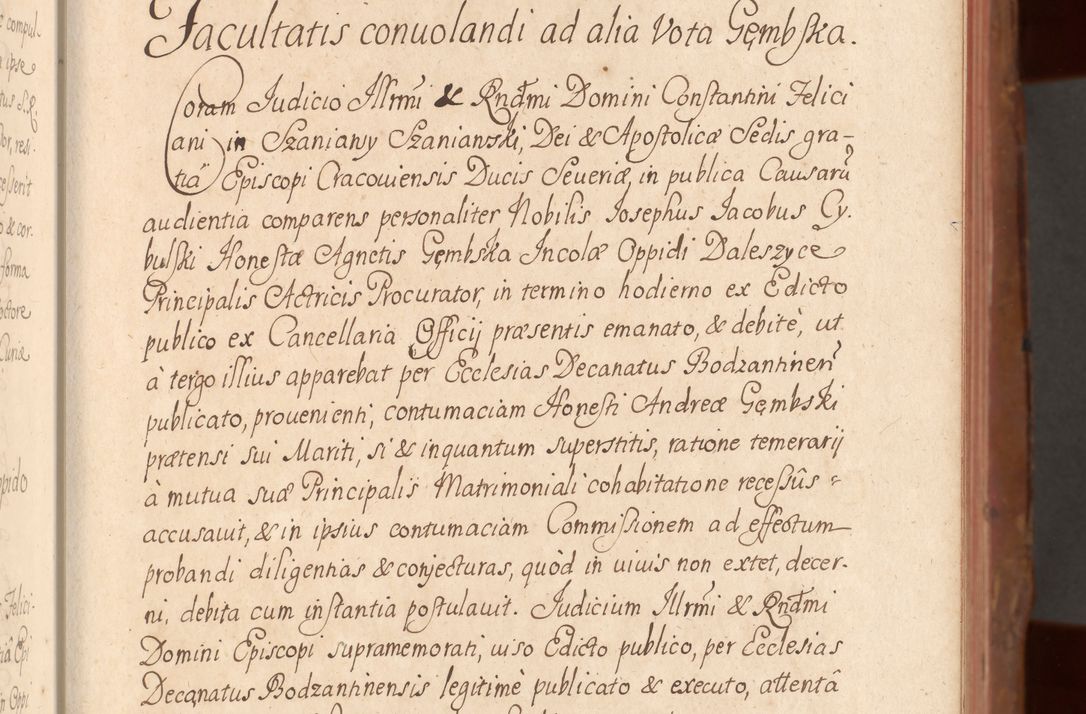 Facultatis conuolandi ad alia Vota Gęmbska.
Coram Judicio Jllrm̃i & Rnd̃mi Domini Constantini Felici
ani in Szaniawy Szaniawski, Dei & Apostolicæ Sedis gra-
tiâ Episcopi Cracouiensis Ducis Seueriæ, in publica Causarũ
audientia comparens personaliter Nobilis Josephus Jacobus Cy-
bulski Honestæ Agnetis Gęmbska Jncolæ Oppidi Daleszyce
Principalis Actricis Procurator, in termino hodierno ex Edicto
publico ex Cancellaria Officij præsentis emanato, & debitè, ut
à tergo illius apparebat per Ecclesias Decanatus Bodzantineñ
publicato, prouenienti, contumaciam Honesti Andreæ Gęmbski
prætensi sui Mariti, si & inquantum superstitis, ratione temerarij
à mutua suæ Principalis Matrimoniali cohabitatione recessûs
accusauit, & in ipsius contumaciam Commissionem ad effectum
probandi diligentias & conjecturas, quòd in uiuis non extet, decer-
ni, debita cum instantia postulauit. Judicium Jllrm̃i & Rnd̃mi
Domini Episcopi supramemorati, uiso Edicto publico, per Ecclesias
Decanatus Bodzantinensis legitimè publicato & executo, attentâ